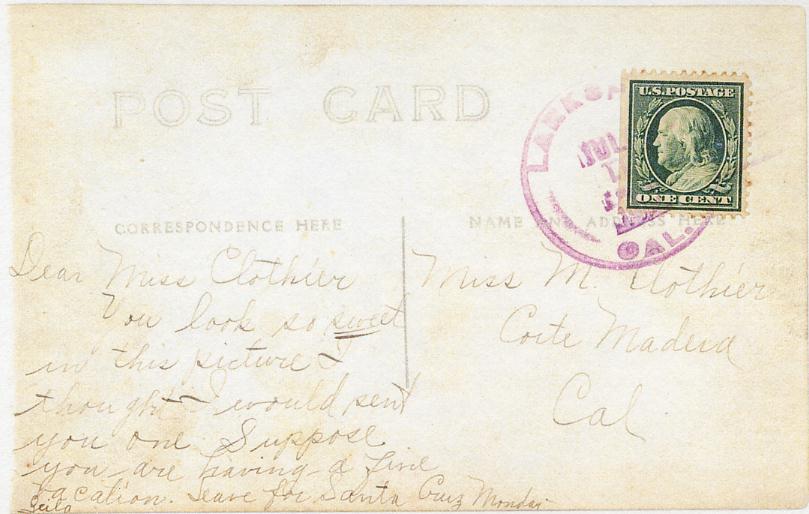 POST CARD
U.S. POSTAGE
ONE CENT
LARKS
JUL
CAL.
CORRESPONDENCE HERE
NAME AND ADDRESS HERE
Dear Miss Clothier
You look so sweet
in this picture I
thought I would sent
you one Suppose
you are having a fine
vacation. Leave for Santa Cruz Monday
Miss M. Clothier
Corte Madera
Cal